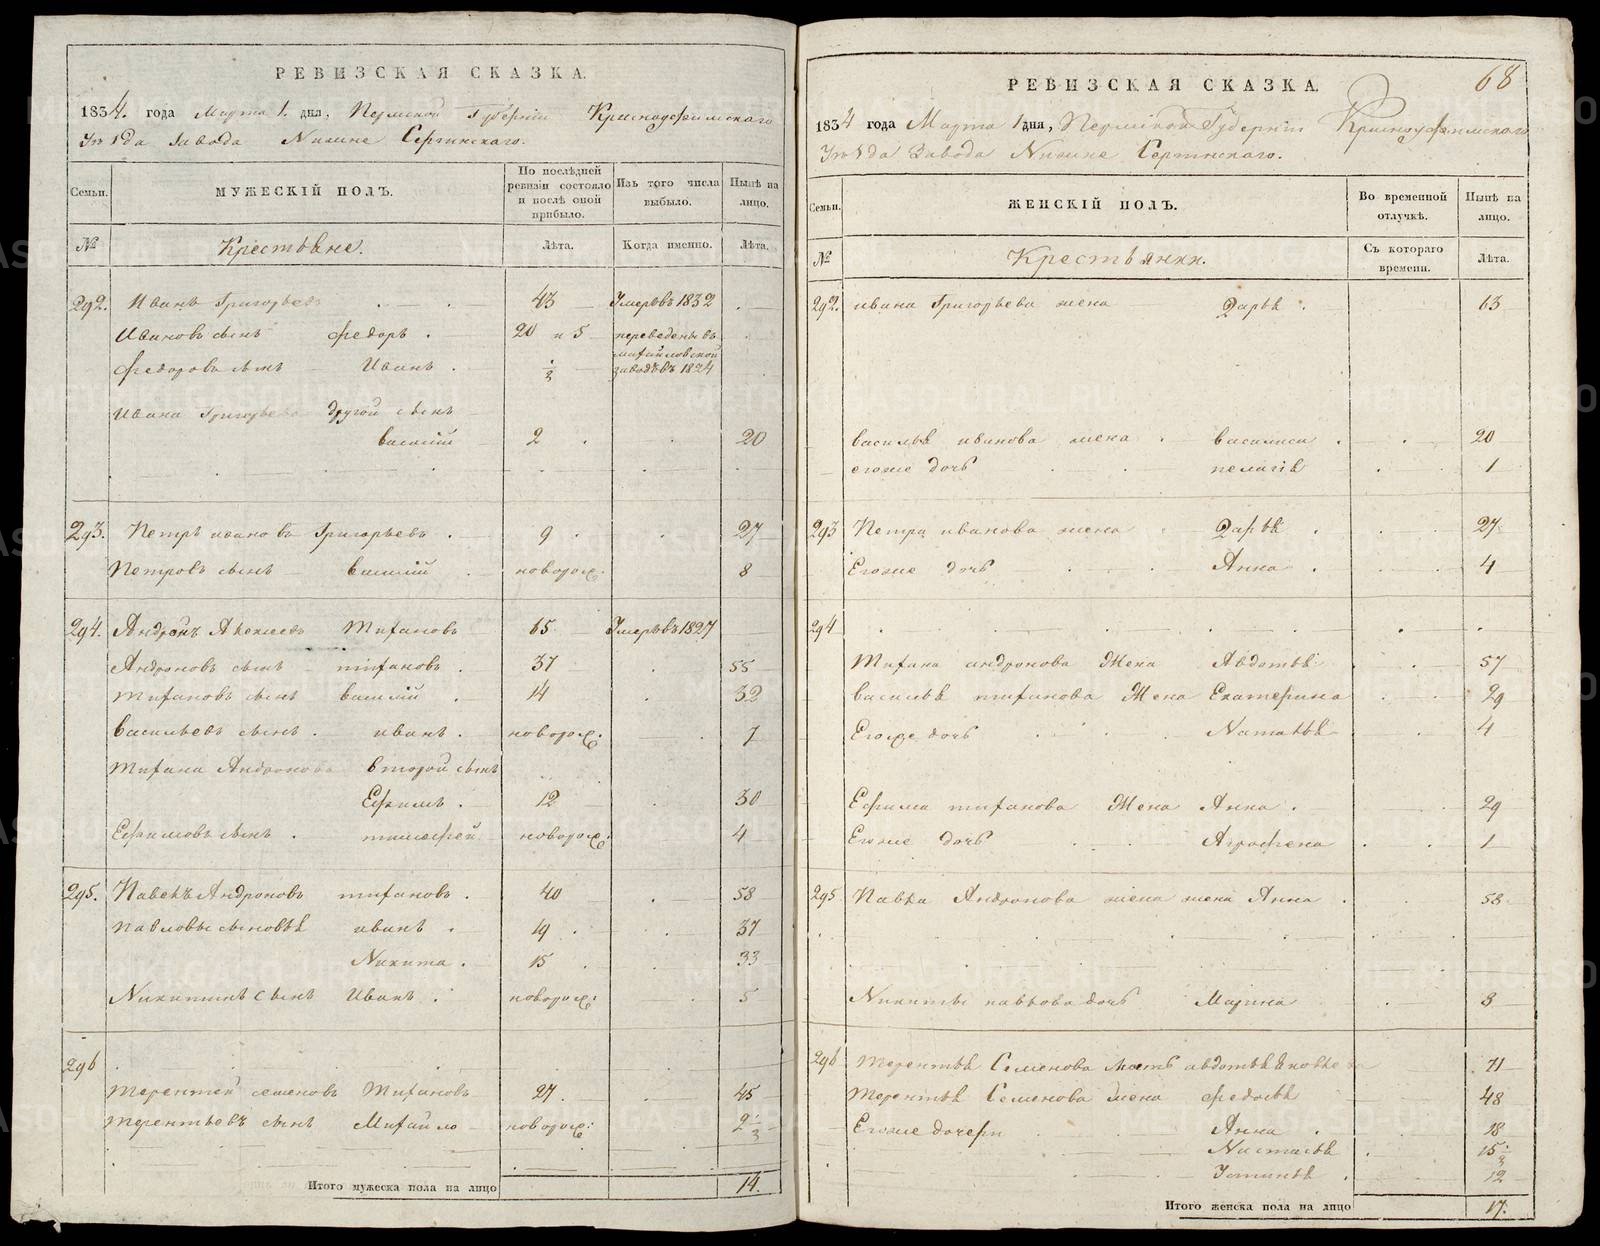 РЕВИЗСКАЯ СКАЗКА.
1834. года Марта 1. дня, Пермской Губерніи Красноуфимскаго
Уѣзда Завода Нижне Сергинскаго.
Семьи.
МУЖЕСКІЙ ПОЛЪ.
По послѣдней ревизіи состояло и послѣ оной прибыло.
Изъ того числа выбыло.
Нынѣ на лицо.
№
Крестьяне.
Лѣта.
Когда именно.
Лѣта.
292. Иванъ Григорьевъ 43 Умеръ въ 1832
Ивановъ сынъ Федоръ. 20 и 5 переведены въ
Михайловской
Федорова сынъ Иванъ. ½ заводъ въ 1824
Ивана Григорьева другой сынъ
василій 2 20
293. Петръ иванова Григорьевъ. 9 27
Петровъ сынъ василій новорож: 8
294. Андронъ Алексѣевъ Титановъ 65 Умеръ въ 1827
Андроновъ сынъ титановъ. 37 55
Титановъ сынъ василій 14 32
васильевъ сынъ. иванъ. новорож: 7
Титана Андронова второй сынъ
Ефимъ. 12 30
Ефимовъ сынъ. тимофей новорож: 4
295. Павелъ Андроновъ титановъ. 40 58
павловы сыновья иванъ. 19 37
Никита. 15 33
Никитинъ сынъ Иванъ. новорож: 5
296
терентей семеновъ Титановъ 27. 45
терентьевъ сынъ Михайло новорож: 2½
Итого мужеска пола на лицо 14.
68
РЕВИЗСКАЯ СКАЗКА.
1834 года Марта 1 дня, Пермской Губерніи Красноуфимскаго
Уѣзда Завода Нижне Сергинскаго.
Семьи.
ЖЕНСКІЙ ПОЛЪ.
Во временной отлучкѣ.
Нынѣ на лицо.
№
Крестьянки.
Съ котораго времени.
Лѣта.
292. ивана Григорьева жена Дарья. 63
василья иванова жена. василиса. 20
егоже дочь пелагія 1
293 Петра иванова жена Дарья 27
Егоже дочь Анна 4
294
Титана андронова Жена Авдотья 57
василья титанова Жена Екатерина 29
Егоже дочь Наталья 4
Ефима титанова Жена Анна. 29
Егоже дочь Аграфена 1
295 Павла Андронова жена жена Анна 58
Никиты павлова дочь Марина 8
296 терентья Семенова Мать авдотья 71
терентья Семенова жена федосья 48
Егоже дочери Анна 18
Настасья 15½
Устинья 12
Итого женска пола на лицо 17.